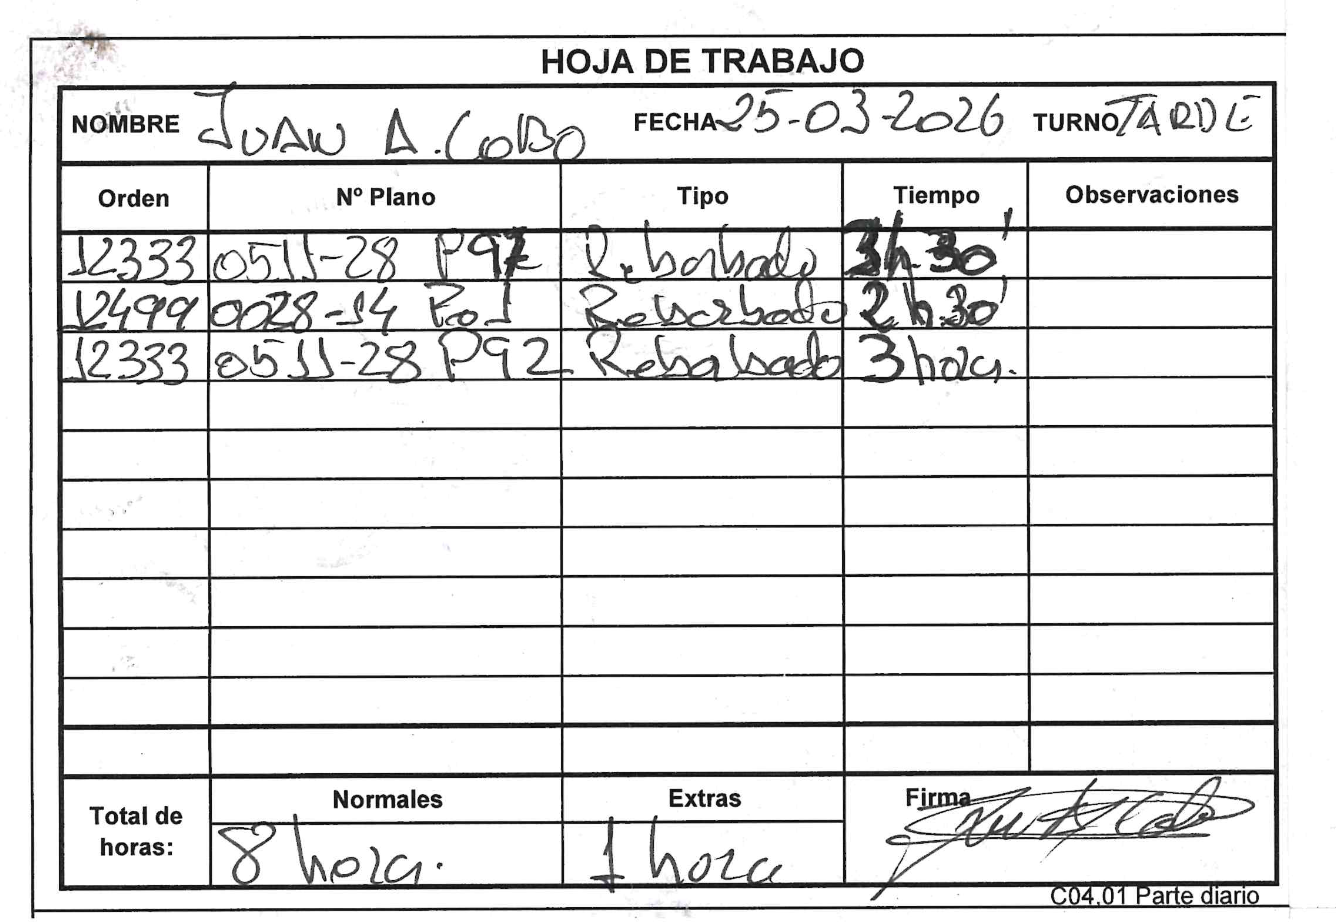 HOJA DE TRABAJO
NOMBRE JUAN A. COBO FECHA 25-03-2026 TURNO TARDE
Orden Nº Plano Tipo Tiempo Observaciones
12333 0511-28 Rebarbado 3h.30'
12499 0028-14 Po1 Rebarbado 2h.30'
12333 0511-28 P92 Rebarbado 3 hora.
Total de horas: Normales Extras Firma
8 hora. 1 hora
C04.01 Parte diario